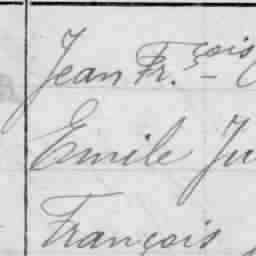 Jean Fr.çois
Emile Ju
François